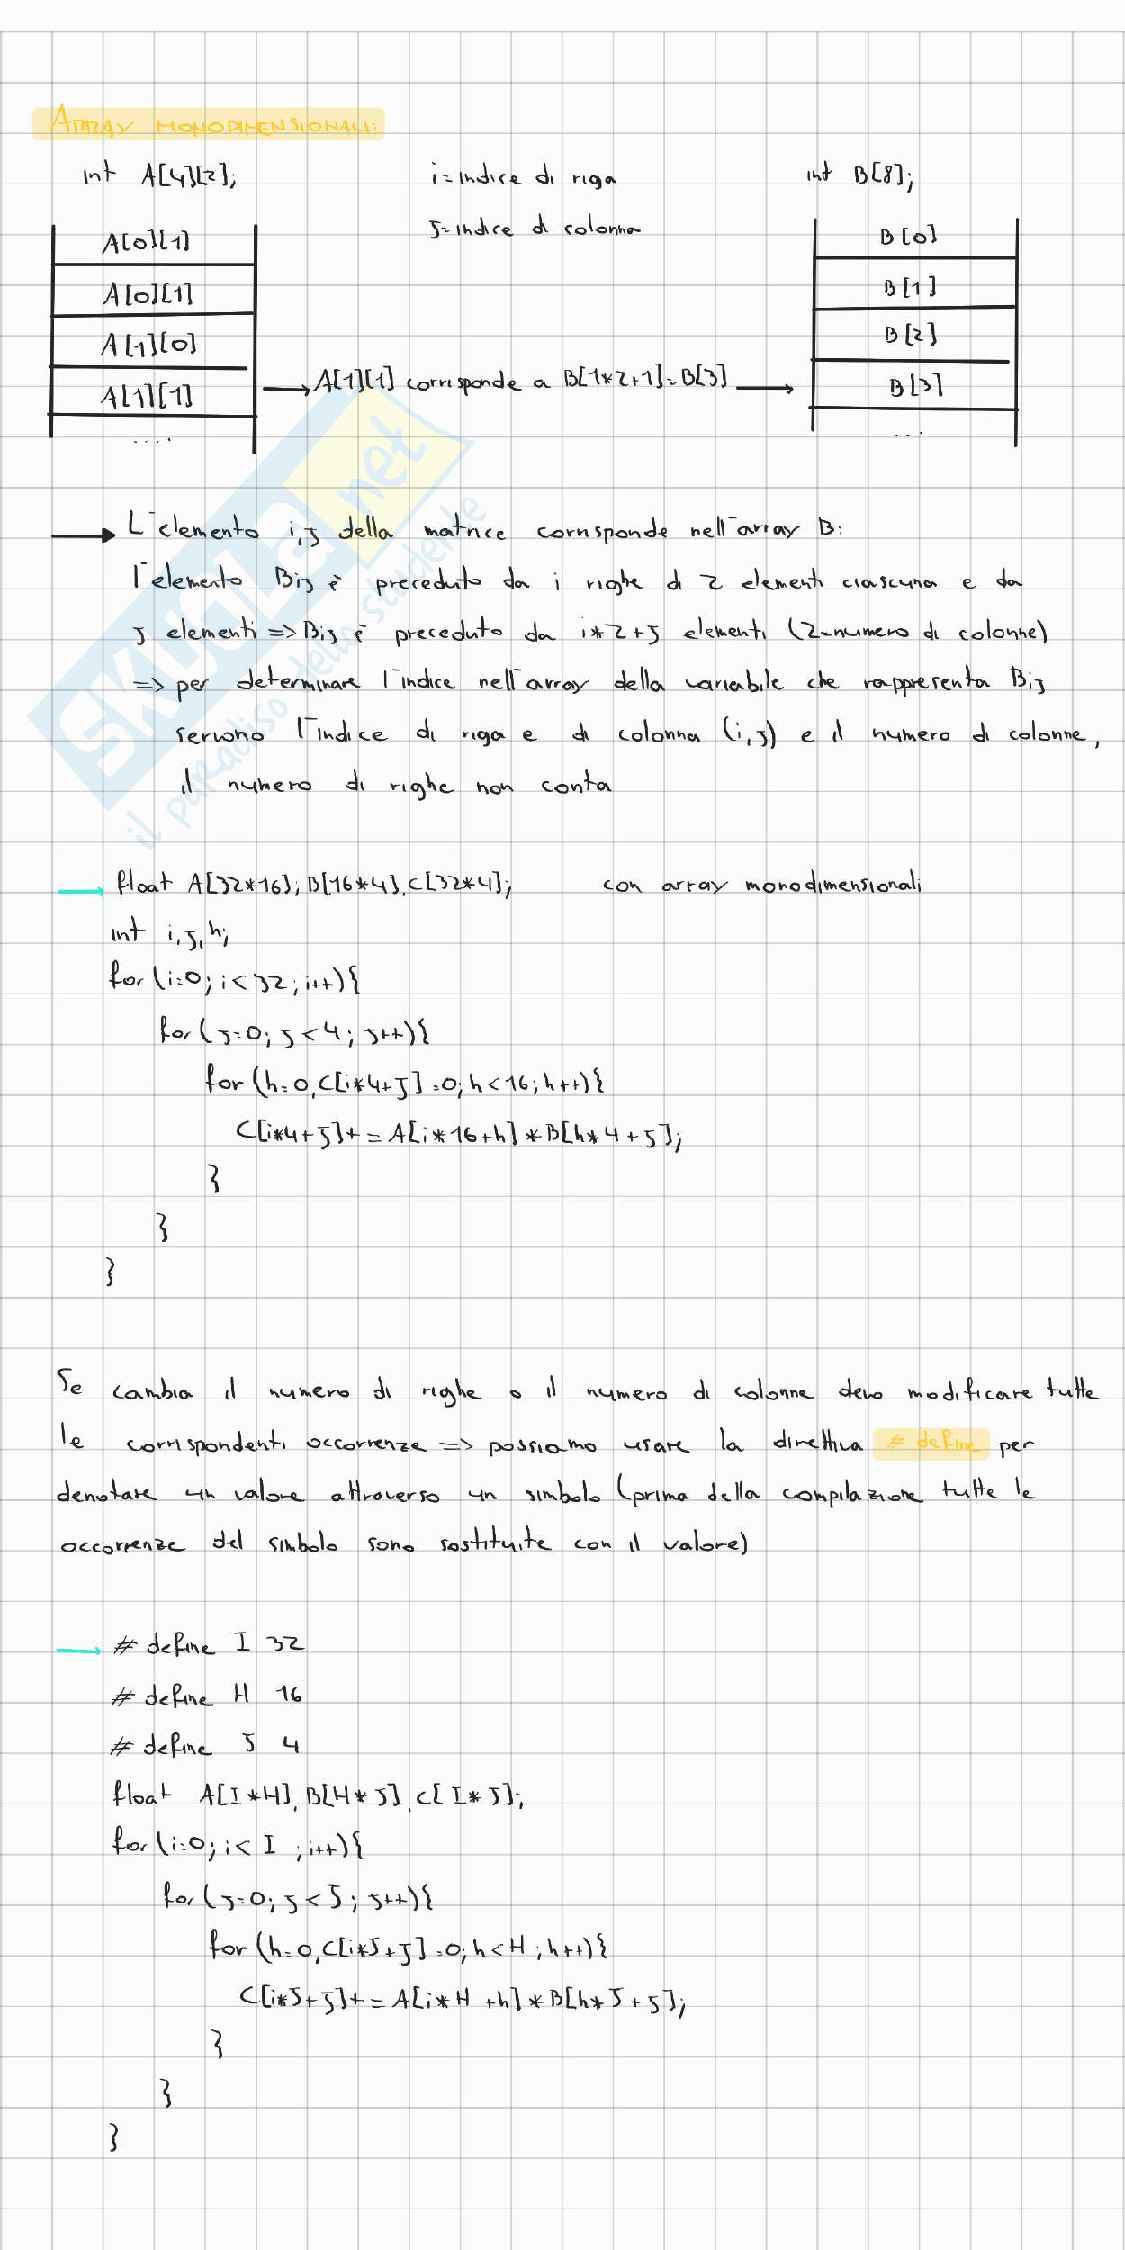 ARRAY MONODIMENSIONALI:
int A[4][2];
i=indice di riga
int B[8];
j=indice di colonna
A[0][1]
B[0]
A[0][1]
B[1]
A[1][0]
B[2]
A[1][1]
A[1][1] corrisponde a B[1*2+1]=B[3]
B[3]
....
...
L'elemento i,j della matrice corrisponde nell'array B:
l'elemento Bij è preceduto da i righe di 2 elementi ciascuna e da
j elementi => Bij è preceduto da i*2+j elementi (2=numero di colonne)
=> per determinare l'indice nell'array della variabile che rappresenta Bij
servono l'indice di riga e di colonna (i,j) e il numero di colonne,
il numero di righe non conta
float A[32*16], B[16*4], C[32*4];
con array monodimensionali
int i,j,h;
for(i=0; i<32; i++){
for(j=0; j<4; j++){
for(h=0,C[i*4+j]=0; h<16; h++){
C[i*4+j]+=A[i*16+h]*B[h*4+j];
}
}
}
Se cambia il numero di righe o il numero di colonne devo modificare tutte
le corrispondenti occorrenze => possiamo usare la direttiva # define per
denotare un valore attraverso un simbolo (prima della compilazione tutte le
occorrenze del simbolo sono sostituite con il valore)
# define I 32
# define H 16
# define J 4
float A[I*H], B[H*J], C[I*J];
for(i=0; i<I; i++){
for(j=0; j<J; j++){
for(h=0,C[i*J+j]=0; h<H; h++){
C[i*J+j]+=A[i*H+h]*B[h*J+j];
}
}
}
SKUOLA.net
il paradiso dello studente